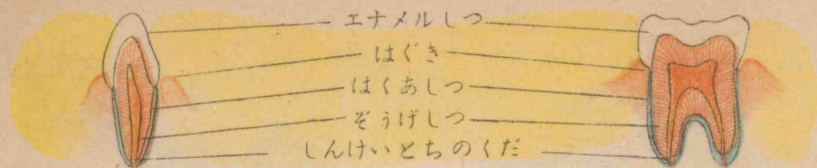 エナメルしつ
はぐき
はくあしつ
ぞうげしつ
しんけいとちのくだ